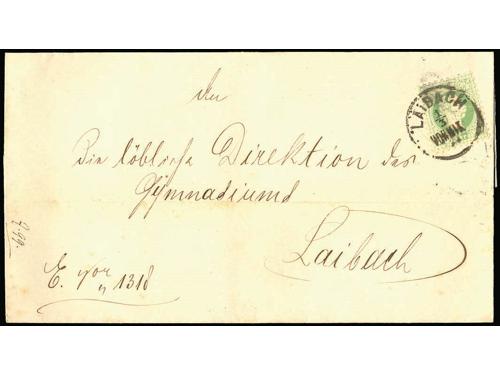 An
Die löbliche Direktion des
Gymnasiums
Laibach
LAIBACH
E. No
" 1318